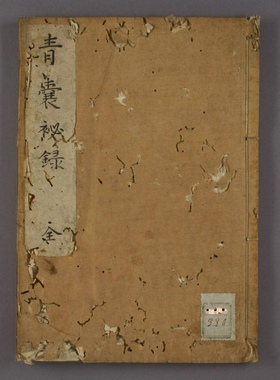 青嚢祕録
全